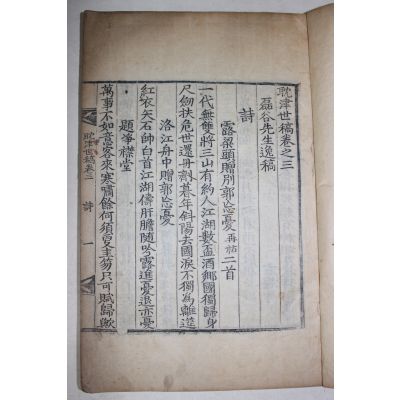 耽津世稿卷之三
磊谷先生逸稿
詩
露梁頭贈別郭忘憂再祐二首
一代無雙將三山有約人江湖數盃酒鄉國獨歸身
尺劒扶危世還丹制暮年斜陽去國淚不獨為離筵
洛江舟中贈郭忘憂
紅衣天右帥白首江湖儔肝膽隨吟露進憂退亦憂
題爭襟堂
萬事不如意客來寒肅餘何須更主芻只可賦歸歟
耽津世稿卷三 詩 一